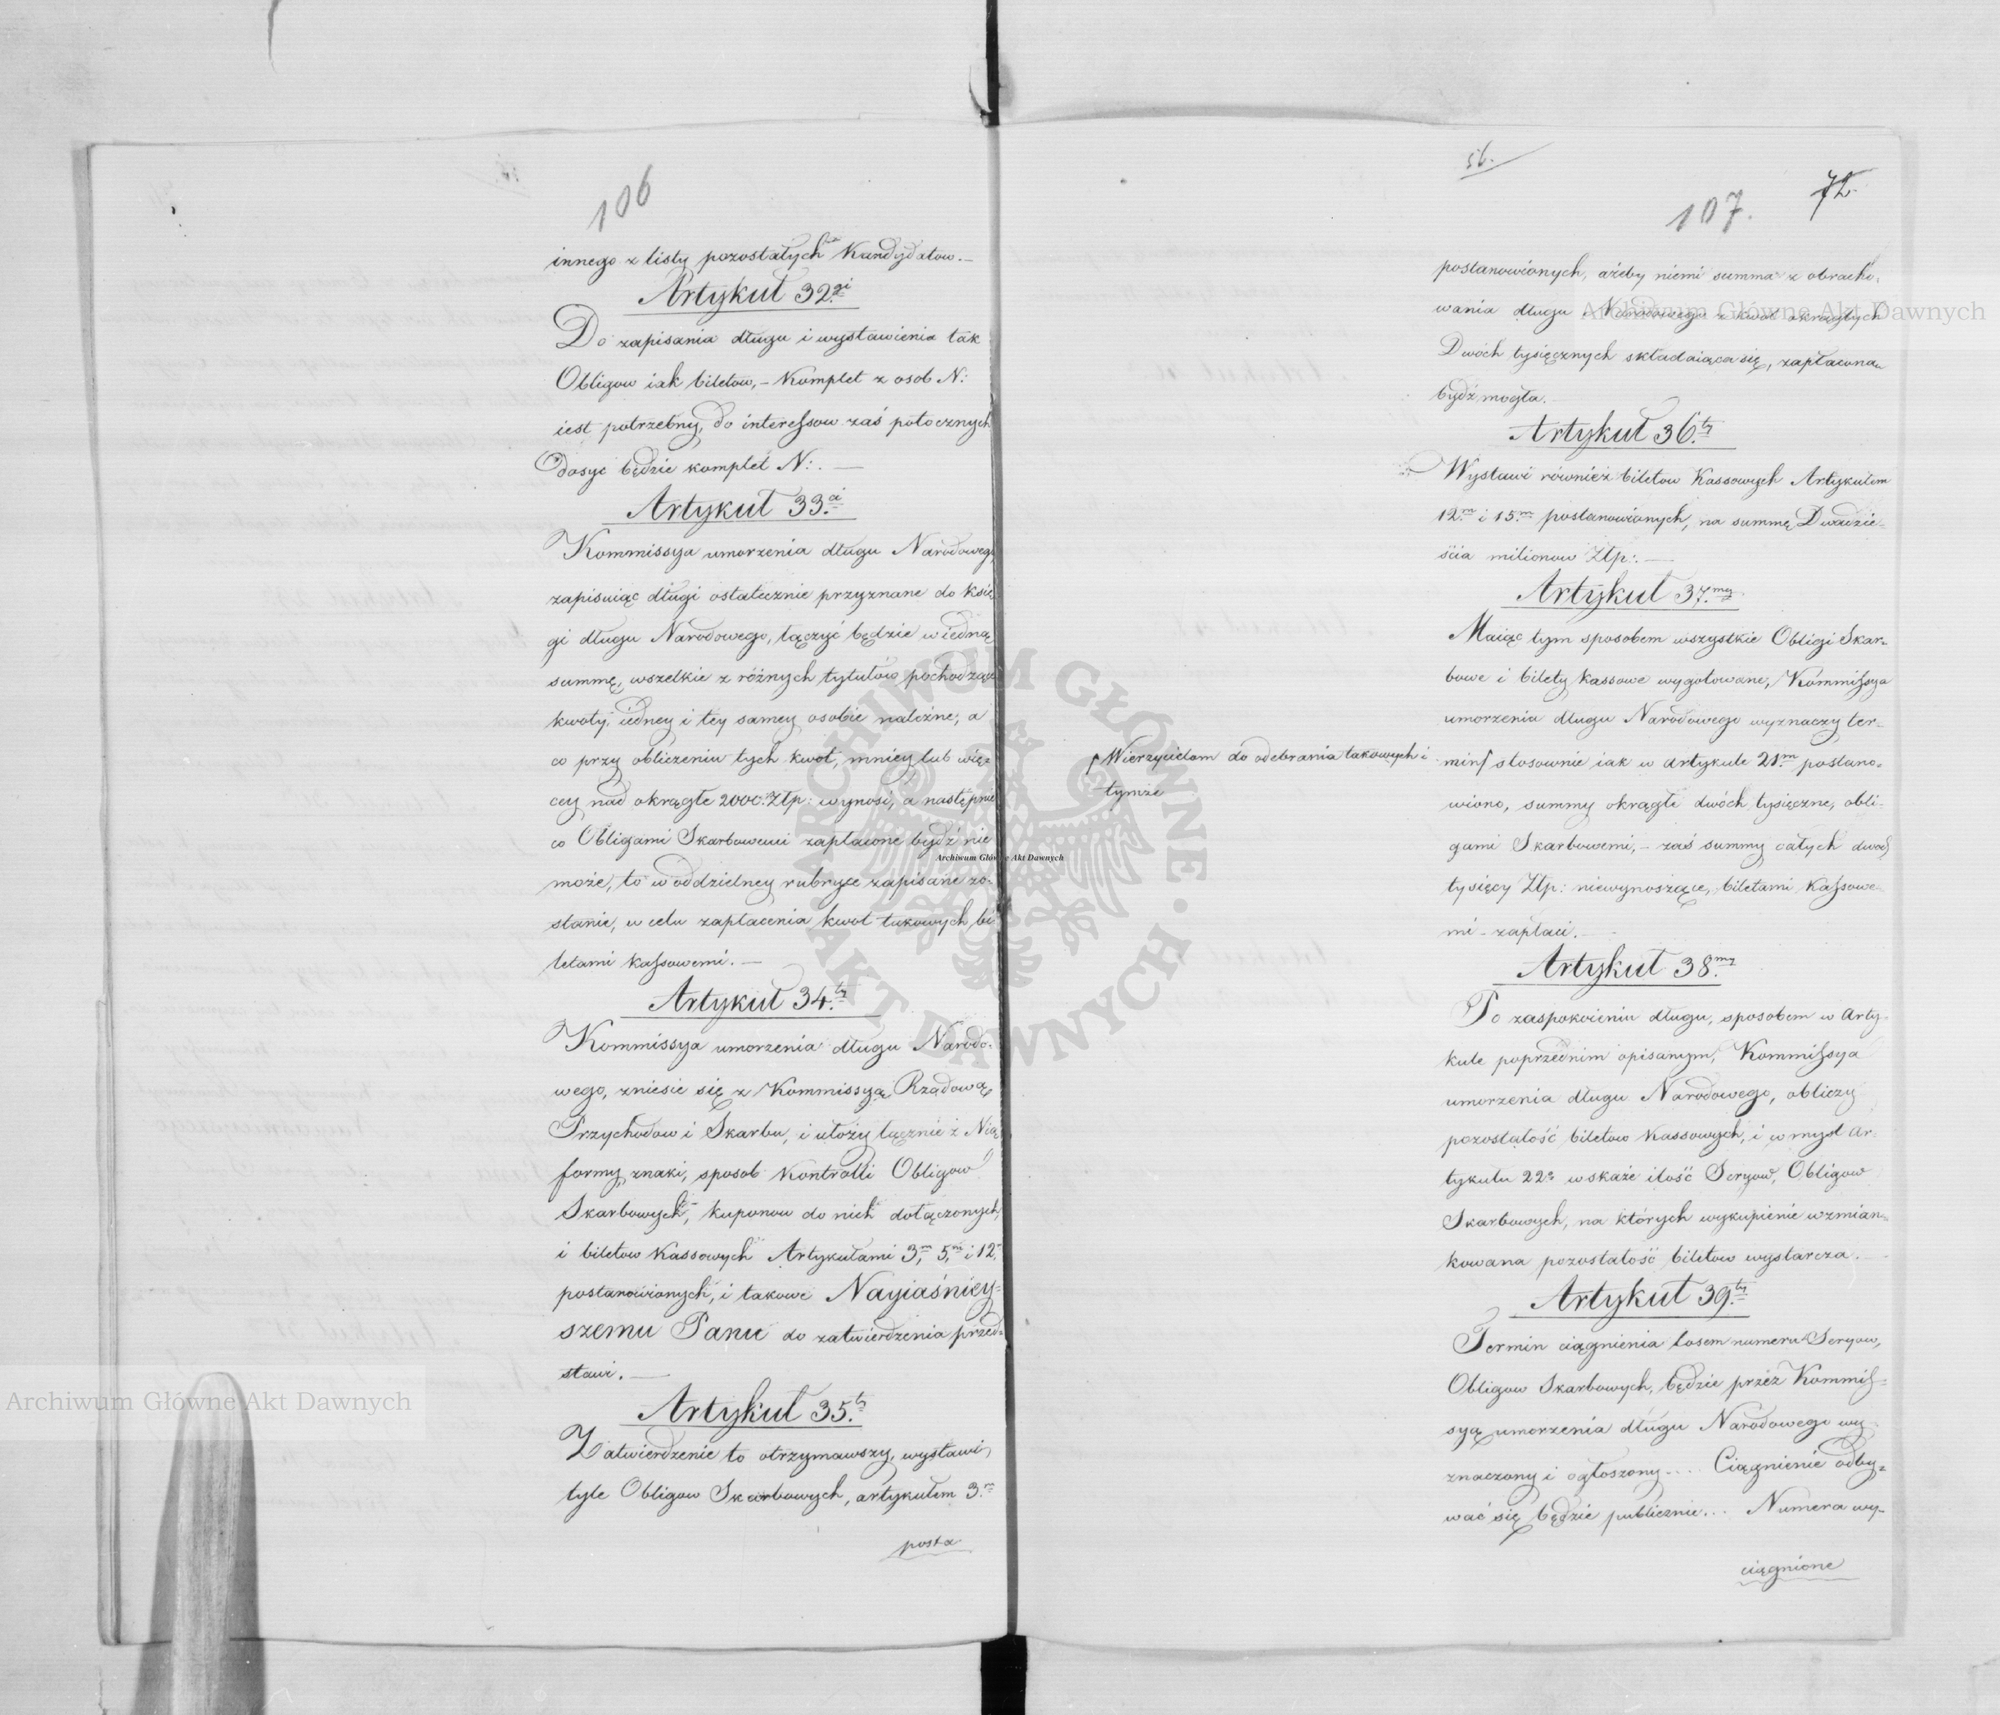 106
innego z listy pozostałych Kandydatow.—
Artykuł 32.gi
Do zapisania długu i wystawienia tak
Obligow iak biletow, – Komplet z osob N:
iest potrzebny, do interessow zaś potocznych
dosyć będzie komplet N: . —
Artykuł 33.ci
Kommissya umorzenia długu Narodowego,
zapisuiąc długi ostatecznie przyznane do księ-
gi długu Narodowego, łączyć będzie w iedną
summę, wszelkie z różnych tytułów pochodzące
kwoty, iedney i tey samey osobie należne; a
co przy obliczeniu tych kwot, mniey lub wię-
cey nad okrągłe 2000. Złp: wynosi, a następnie
co Obligami Skarbowemi zapłacone bydź nie
może, to w oddzielney rubryce zapisane zo-
stanie, w celu zapłacenia kwot takowych bi-
letami kassowemi. —
Artykuł 34.ty
Kommissya umorzenia długu Narodo-
wego, zniesie się z Kommissyą Rządową
Przychodow i Skarbu, i ułoży łącznie z Nią
formy, znaki, sposob Kontrolli Obligow
Skarbowych, kuponow do nich dołączonych,
i biletow Kassowych Artykułami 3,m 5,m i 12.
postanowionych, i takowe Nayiaśniey-
szemu Panu do zatwierdzenia przed-
stawi. —
Artykuł 35.ty
Zatwierdzenie to otrzymawszy, wystawi,
tyle Obligow Skarbowych, artykułem 3.m
posta
56.
107.
72.
postanowionych, ażeby niemi summa z obracho-
wania długu Narodowego z kwot okrągłych
Dwóch tysięcznych składaiąca się, zapłacona
bydź mogła.
Artykuł 36.ty
Wystawi również biletow Kassowych Artykułem
12.m i 15.m postanowionych, na summę Dwadzie-
ścia milionow Złp: . —
Artykuł 37.my
Maiąc tym sposobem wszystkie Obligi Skar-
bowe i bilety kassowe wygotowane, Kommissya
umorzenia długu Narodowego wyznaczy ter-
Wierzycielom do odebrania takowych i
tymże
min stosownie iak w artykule 21.m postano-
wiono, summy okrągłe dwóch tysięczne, obli-
gami Skarbowemi, – zaś summy całych dwóch
tysięcy Złp: niewynoszące, biletami Kassowe-
mi – zapłaci. —
Artykuł 38.my
Po zaspokoieniu długu, sposobem w Arty-
kule poprzednim opisanym, Kommissya
umorzenia długu Narodowego, obliczy
pozostałość biletow Kassowych, i w myśl Ar-
tykułu 22o wskaże ilość Seryow, Obligow
Skarbowych, na których wykupienie wzmian-
kowana pozostałość biletow wystarcza. —
Artykuł 39.ty
Termin ciągnienia losem numeru Seryow,
Obligow Skarbowych, będzie przez Kommis-
syą umorzenia długu Narodowego wy-
znaczony i ogłoszony.... Ciągnienie odby-
wać się będzie publicznie... Numera wy-
ciągnione
Archiwum Główne Akt Dawnych
Archiwum Główne Akt Dawnych
Archiwum Główne Akt Dawnych
ARCHIWUM GŁÓWNE · AKT DAWNYCH ·